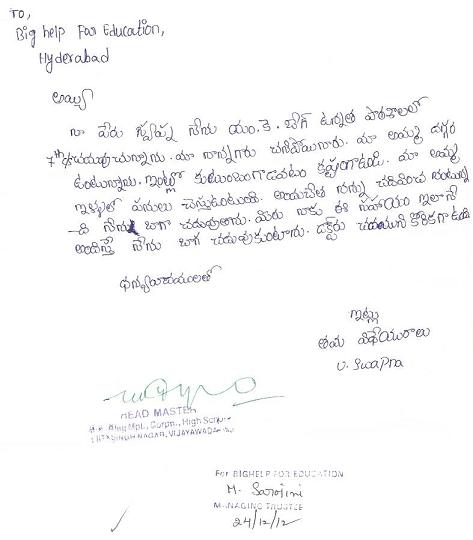 TO,
Big help For Education,
Hyderabad
అయ్యా
నా పేరు స్వప్న నేను యం. కె. బేగ్ ఉన్నత పాఠశాలలో
7th చదువుచున్నాను. మా నాన్నగారు చనిపోయినారు. మా అమ్మ దగ్గర
ఉంటున్నాను. ఇంట్లో కుటుంబం గడవటం కష్టంగా ఉంది. మా అమ్మ
ఇళ్ళలో పనులు చేస్తుంటుంది. అందుచేత నన్ను చదివించ
నేను బాగా చదువుతాను. మీరు నాకు ఈ సహాయం ఇలానే
అందిస్తే నేను బాగ చదువుకుంటాను. డక్టరు చదవాలని కోరికగా ఉంది
ధన్యవాదములతో
ఇట్లు
తమ విధేయురాలు
U. Swapna
HEAD MASTER
Mpl., Corpn., High School
SINGH NAGAR, VIJAYAWADA
For BIGHELP FOR EDUCATION
M. Sarojini
MANAGING TRUSTEE
24/12/12